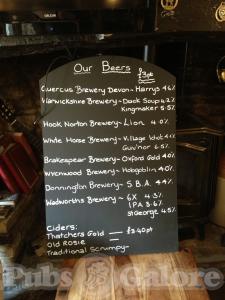 Our Beers
£3pt
Quercus Brewery Devon~Harrys 4%
Warwickshire Brewery~Duck Soup 4.2%
Kingmaker 5.5%
Hook Norton Brewery~ Lion 4.0%
White Horse Brewery~Village Idiot 4.1%
Guv'nor 6%
Brakespear Brewery~Oxford Gold 4.0%
Wychwood Brewery~Hobgoblin 4.0%
Donnington Brewery~S.B.A. 4.4%
Wadworths Brewery~ 6X 4.3%
IPA 3.6%
St George 4.5%
Ciders:
Thatchers Gold — £3.40pt
Old Rosie —
Traditional Scrumpy—
PubsGalore